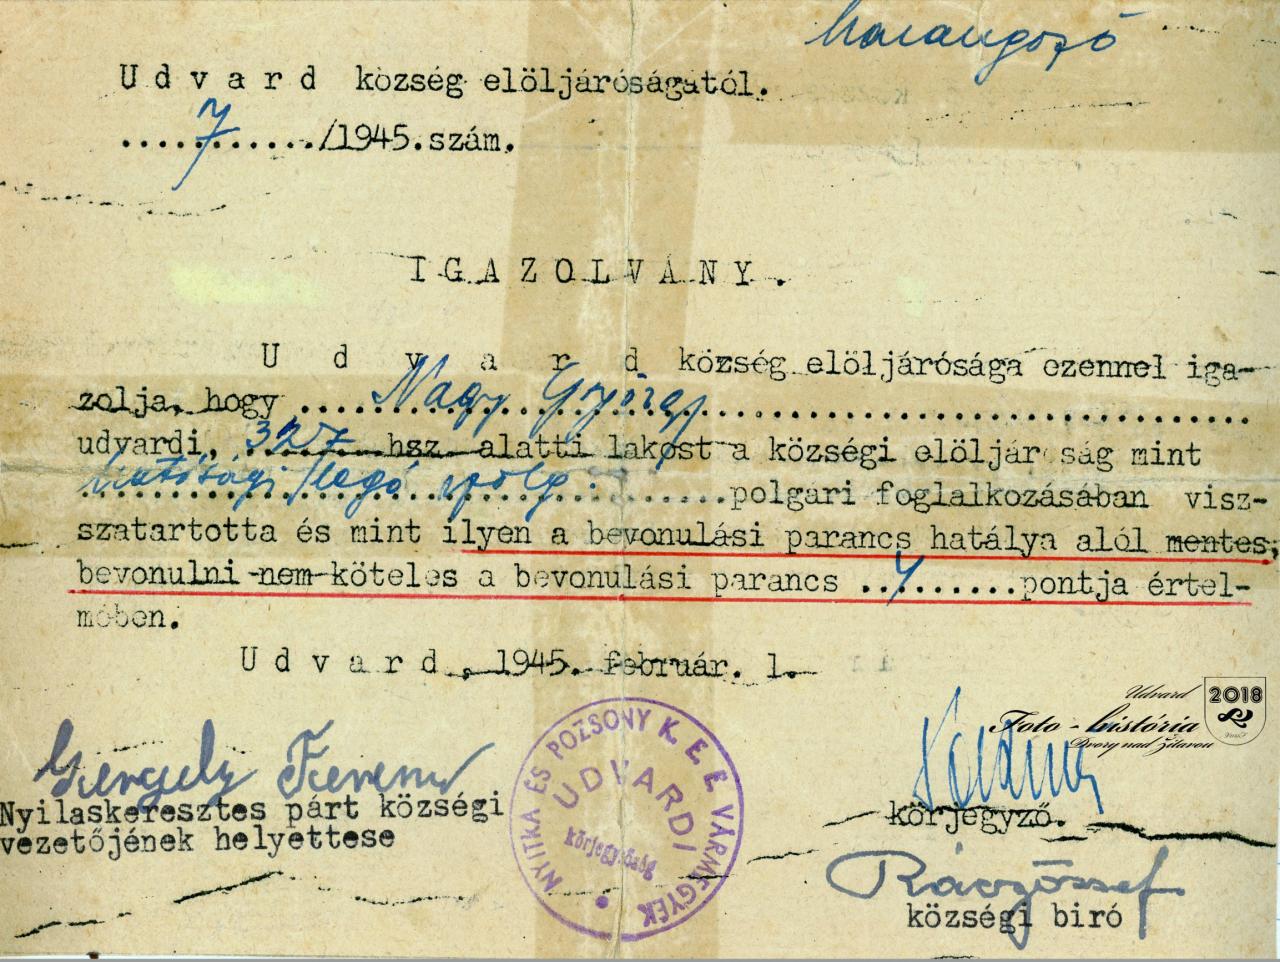 Harangozó
U d v a r d község elöljáróságától.
.......7....../1945.szám.
I G A Z O L V Á N Y .
U d v a r d község elöljárósága ezennel iga-
zolja, hogy .....Nagy György..............................
udvardi, 327 hsz alatti lakost a községi elöljáróság mint
hatósági légó szolg. ........polgári foglalkozásában visz-
szatartotta és mint ilyen a bevonulási parancs hatálya alól mentes,
bevonulni nem köteles a bevonulási parancs ..4.......pontja értel-
mében.
U d v a r d , 1945. február. 1.
Udvard 2018
Foto - história
Dvory nad Žitavou
Gergely Ferenc
Nyilaskeresztes párt községi
vezetőjének helyettese
NYITKA ÉS POZSONY K.E.E VÁRMEGYÉK
UDVARDI
körjegyzőség
körjegyző.
Rácz József
községi biró